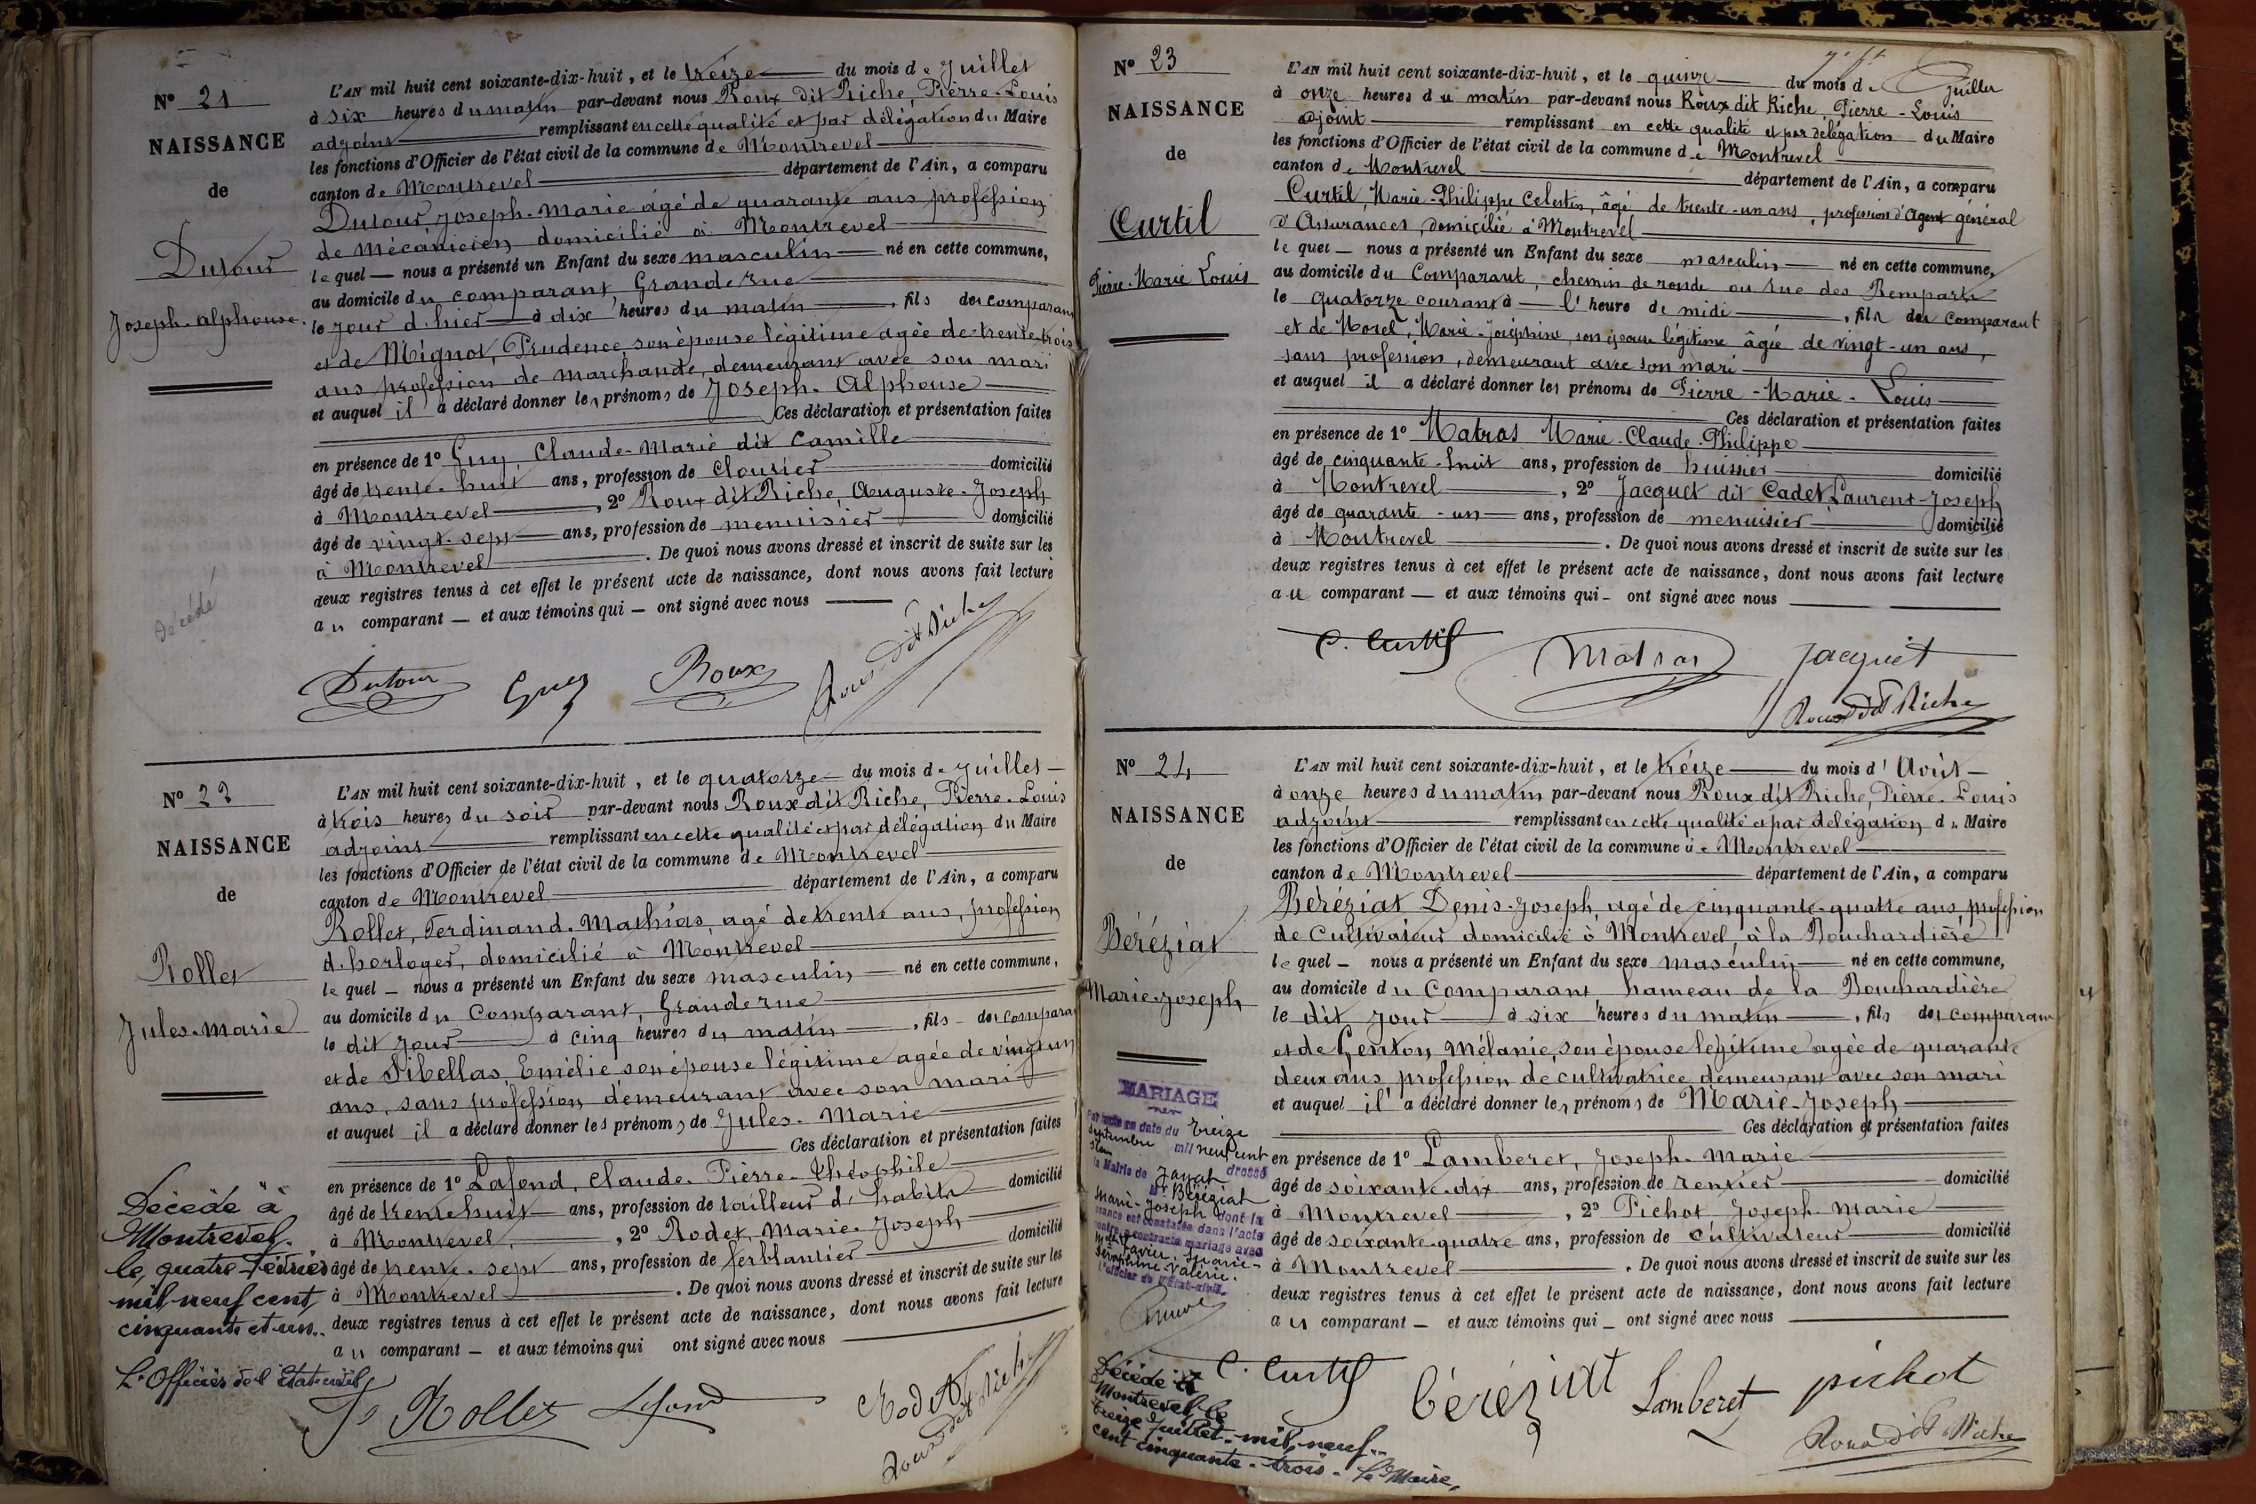 N° 21
NAISSANCE
de
Dutour
Joseph-alphonse.
décédé
L'AN mil huit cent soixante-dix-huit, et le treize du mois de Juillet
à six heures du matin par-devant nous Roux dit Riche, Pierre-Louis
adjoint remplissant en cette qualité et par délégation du Maire
les fonctions d'Officier de l'état civil de la commune de Montrevel
canton de Montrevel département de l'Ain, a comparu
Dutour Joseph-marie âgé de quarante ans profession
de mécanicien domicilié à Montrevel
lequel nous a présenté un Enfant du sexe masculin né en cette commune,
au domicile du comparant, Grande rue
le jour d'hier à dix heures du matin, fils du comparant
et de Mignot, Prudence son épouse légitime agée de trente-trois
ans profession de marchande, demeurant avec son mari
et auquel il a déclaré donner les prénoms de Joseph-Alphonse
Ces déclaration et présentation faites
en présence de 1° Guy Claude-Marie dit Camille
âgé de trente-huit ans, profession de cloutier domicilié
à Montrevel, 2° Roux dit Riche, Auguste-Joseph
âgé de vingt-sept ans, profession de menuisier domicilié
à Montrevel. De quoi nous avons dressé et inscrit de suite sur les
deux registres tenus à cet effet le présent acte de naissance, dont nous avons fait lecture
au comparant et aux témoins qui ont signé avec nous
Dutour Guy Roux Roux dit Riche
N° 22
NAISSANCE
de
Rollet
Jules-marie
Décédé à
Montrevel.
le quatre Février
mil neuf cent
cinquante et un.
L'Officier de l'Etat-civil
L'AN mil huit cent soixante-dix-huit, et le quatorze du mois de Juillet
à trois heures du soir par-devant nous Roux dit Riche, Pierre-Louis
adjoint remplissant en cette qualité et par délégation du Maire
les fonctions d'Officier de l'état civil de la commune de Montrevel
canton de Montrevel département de l'Ain, a comparu
Rollet, Ferdinand-Mathias, agé de trente ans, profession
d'horloger, domicilié à Montrevel
lequel nous a présenté un Enfant du sexe masculin né en cette commune,
au domicile du Comparant, Grande rue
le dit jour à cinq heures du matin, fils du compara
et de Sibellas Emélie son épouse légitime agée de vingt un
ans, sans profession, demeurant avec son mari
et auquel il a déclaré donner les prénoms de Jules-Marie
Ces déclaration et présentation faites
en présence de 1° Lafond, Claude-Pierre-théophile
âgé de trente huit ans, profession de tailleur d'habits domicilié
à Montrevel, 2° Rodet, Marie-Joseph
âgé de trente-sept ans, profession de ferblantier domicilié
à Montrevel. De quoi nous avons dressé et inscrit de suite sur les
deux registres tenus à cet effet le présent acte de naissance, dont nous avons fait lecture
au comparant et aux témoins qui ont signé avec nous
Rollet Lafond Rodet Roux dit Riche
N° 23
NAISSANCE
de
Curtil
Pierre-Marie Louis
L'AN mil huit cent soixante-dix-huit, et le quinze du mois de Juillet
à onze heures du matin par-devant nous Roux dit Riche Pierre-Louis
adjoint remplissant en cette qualité et par délégation du Maire
les fonctions d'Officier de l'état civil de la commune de Montrevel
canton de Montrevel département de l'Ain, a comparu
Curtil, Marie-Philippe Celestin, âgé de trente-un ans, profession d'Agent général
d'Assurances, domicilié à Montrevel
lequel nous a présenté un Enfant du sexe masculin né en cette commune,
au domicile du Comparant, chemin de ronde ou rue des Remparts
le quatorze courant à l'heure de midi, fils du comparant
et de Morel, Marie-Joséphine, son épouse légitime âgée de vingt-un ans,
sans profession, demeurant avec son mari
et auquel il a déclaré donner les prénoms de Pierre-Marie-Louis
Ces déclaration et présentation faites
en présence de 1° Matras Marie-Claude-Philippe
âgé de cinquante-huit ans, profession de huissier domicilié
à Montrevel, 2° Jacquet dit Cadet, Laurent-Joseph
âgé de quarante-un ans, profession de menuisier domicilié
à Montrevel. De quoi nous avons dressé et inscrit de suite sur les
deux registres tenus à cet effet le présent acte de naissance, dont nous avons fait lecture
au comparant et aux témoins qui ont signé avec nous
C. Curtil Matras Jacquet
Roux dit Riche
N° 24
NAISSANCE
de
Béréziat
Marie-Joseph
MARIAGE
Par acte en date du treize
Septembre mil neuf cent
dressé
la Mairie de Jayat
Mr Béréziat
Marie-Joseph dont la
naissance est constatée dans l'acte
contre a contracté mariage avec
Marie-
Valérie.
L'officier de l'État-civil.
Décédé à
Montrevel le
treize Juillet mil neuf
cent cinquante-trois. Le Maire,
L'AN mil huit cent soixante-dix-huit, et le treize du mois d'Août
à onze heures du matin par-devant nous Roux dit Riche, Pierre-Louis
adjoint remplissant en cette qualité et par délégation du Maire
les fonctions d'Officier de l'état civil de la commune de Montrevel
canton de Montrevel département de l'Ain, a comparu
Béréziat Denis-Joseph, agé de cinquante-quatre ans, profession
de Cultivateur domicilié à Montrevel, à la Bouchardière
lequel nous a présenté un Enfant du sexe masculin né en cette commune,
au domicile du Comparant hameau de la Bouchardière
le dit jour à six heures du matin, fils du comparant
et de Genton Mélanie, son épouse légitime agée de quarante
deux ans profession de cultivatrice demeurant avec son mari
et auquel il a déclaré donner les prénoms de Marie-Joseph
Ces déclaration et présentation faites
en présence de 1° Lamberet, Joseph-Marie
âgé de soixante-dix ans, profession de rentier domicilié
à Montrevel, 2° Pichot Joseph-Marie
âgé de soixante-quatre ans, profession de cultivateur domicilié
à Montrevel. De quoi nous avons dressé et inscrit de suite sur les
deux registres tenus à cet effet le présent acte de naissance, dont nous avons fait lecture
au comparant et aux témoins qui ont signé avec nous
C. Curtil béréziat Lamberet pichot
Roux dit Riche